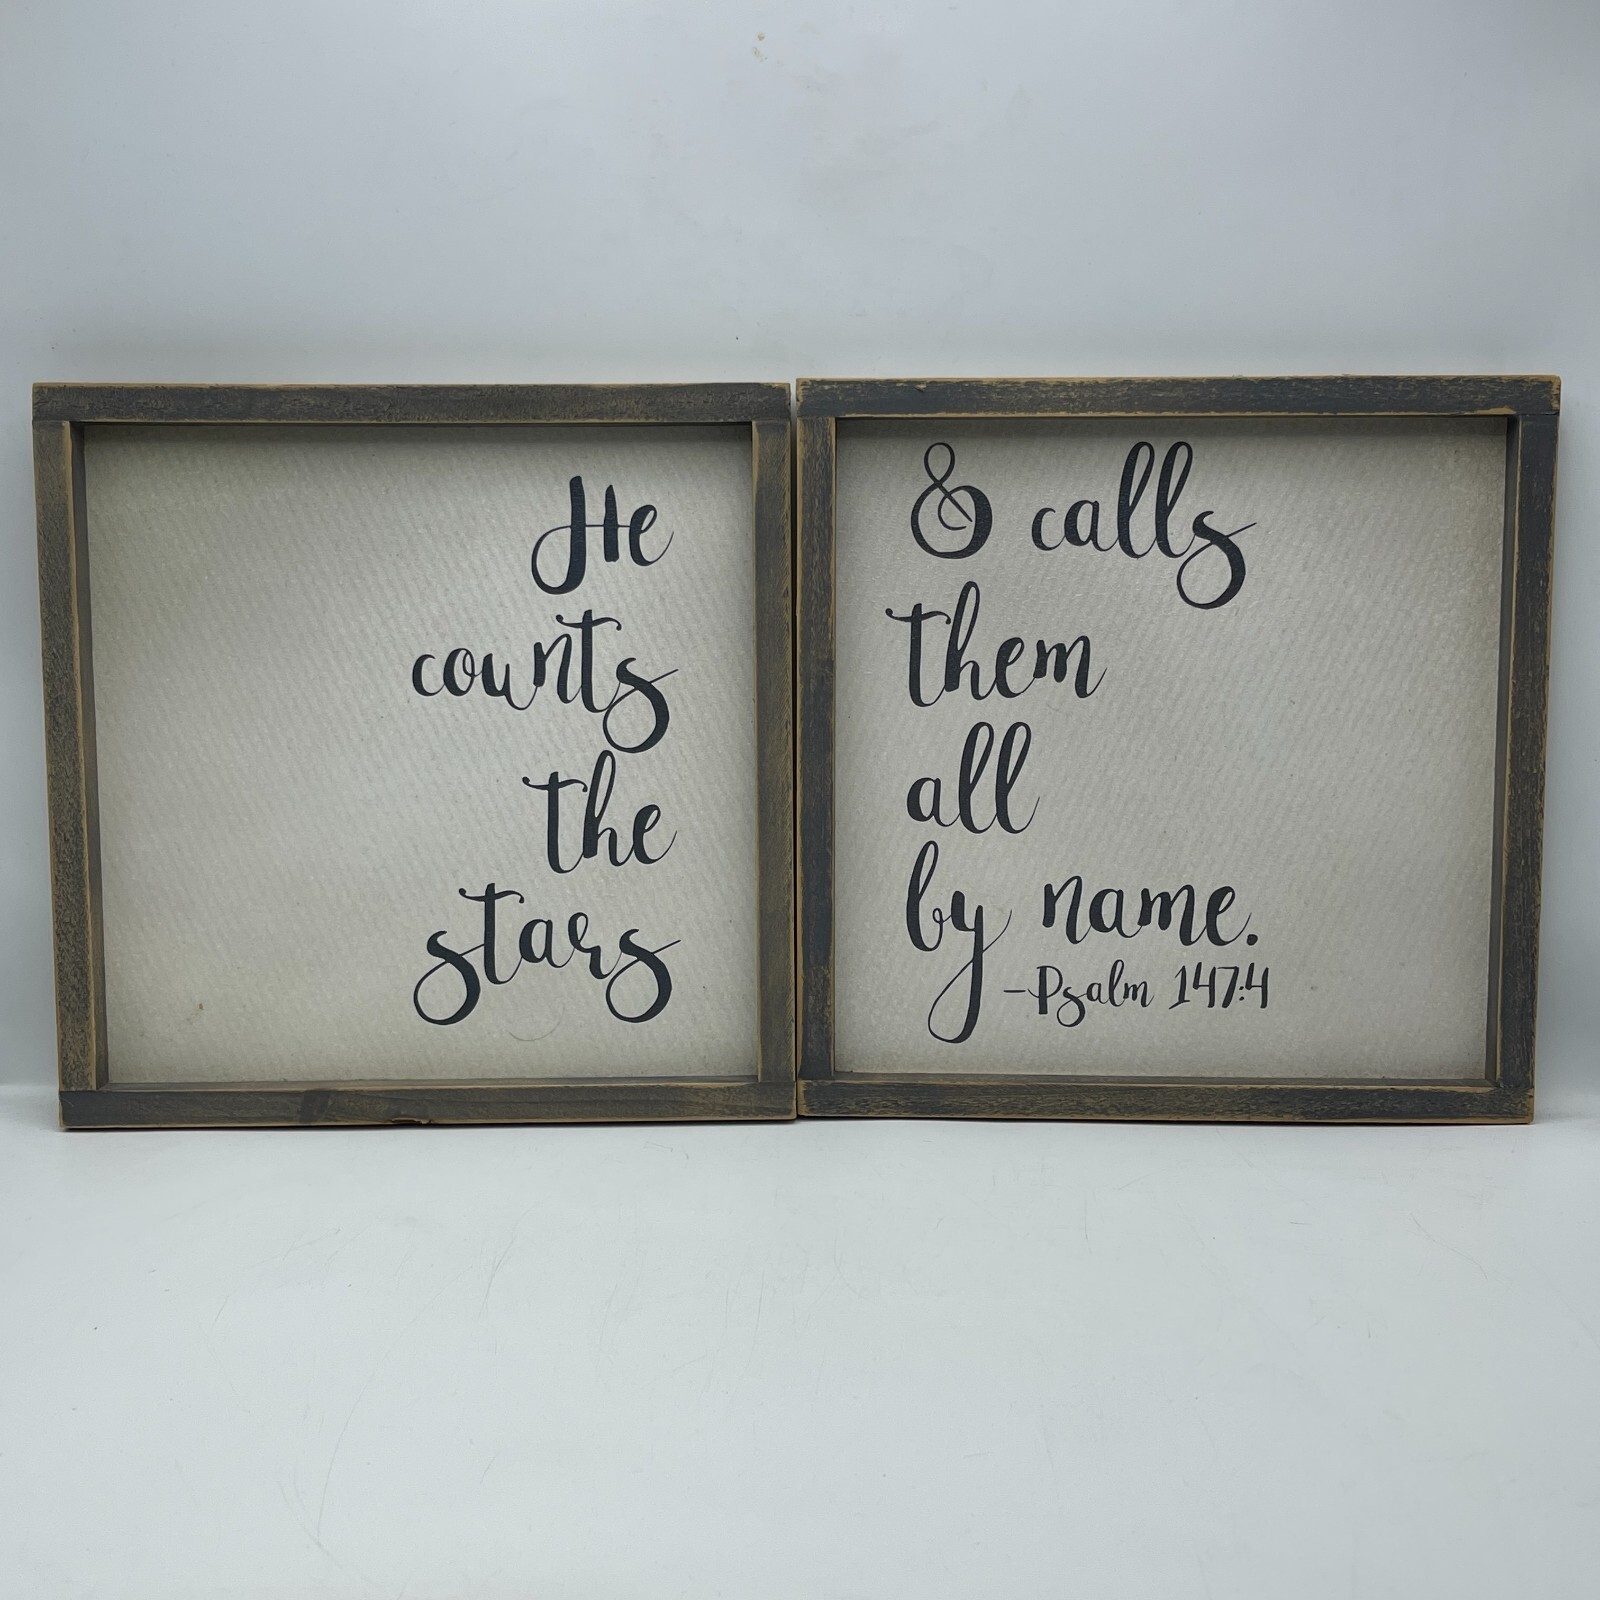 He
counts
the
stars
& calls
them
all
by name.
-Psalm 147:4